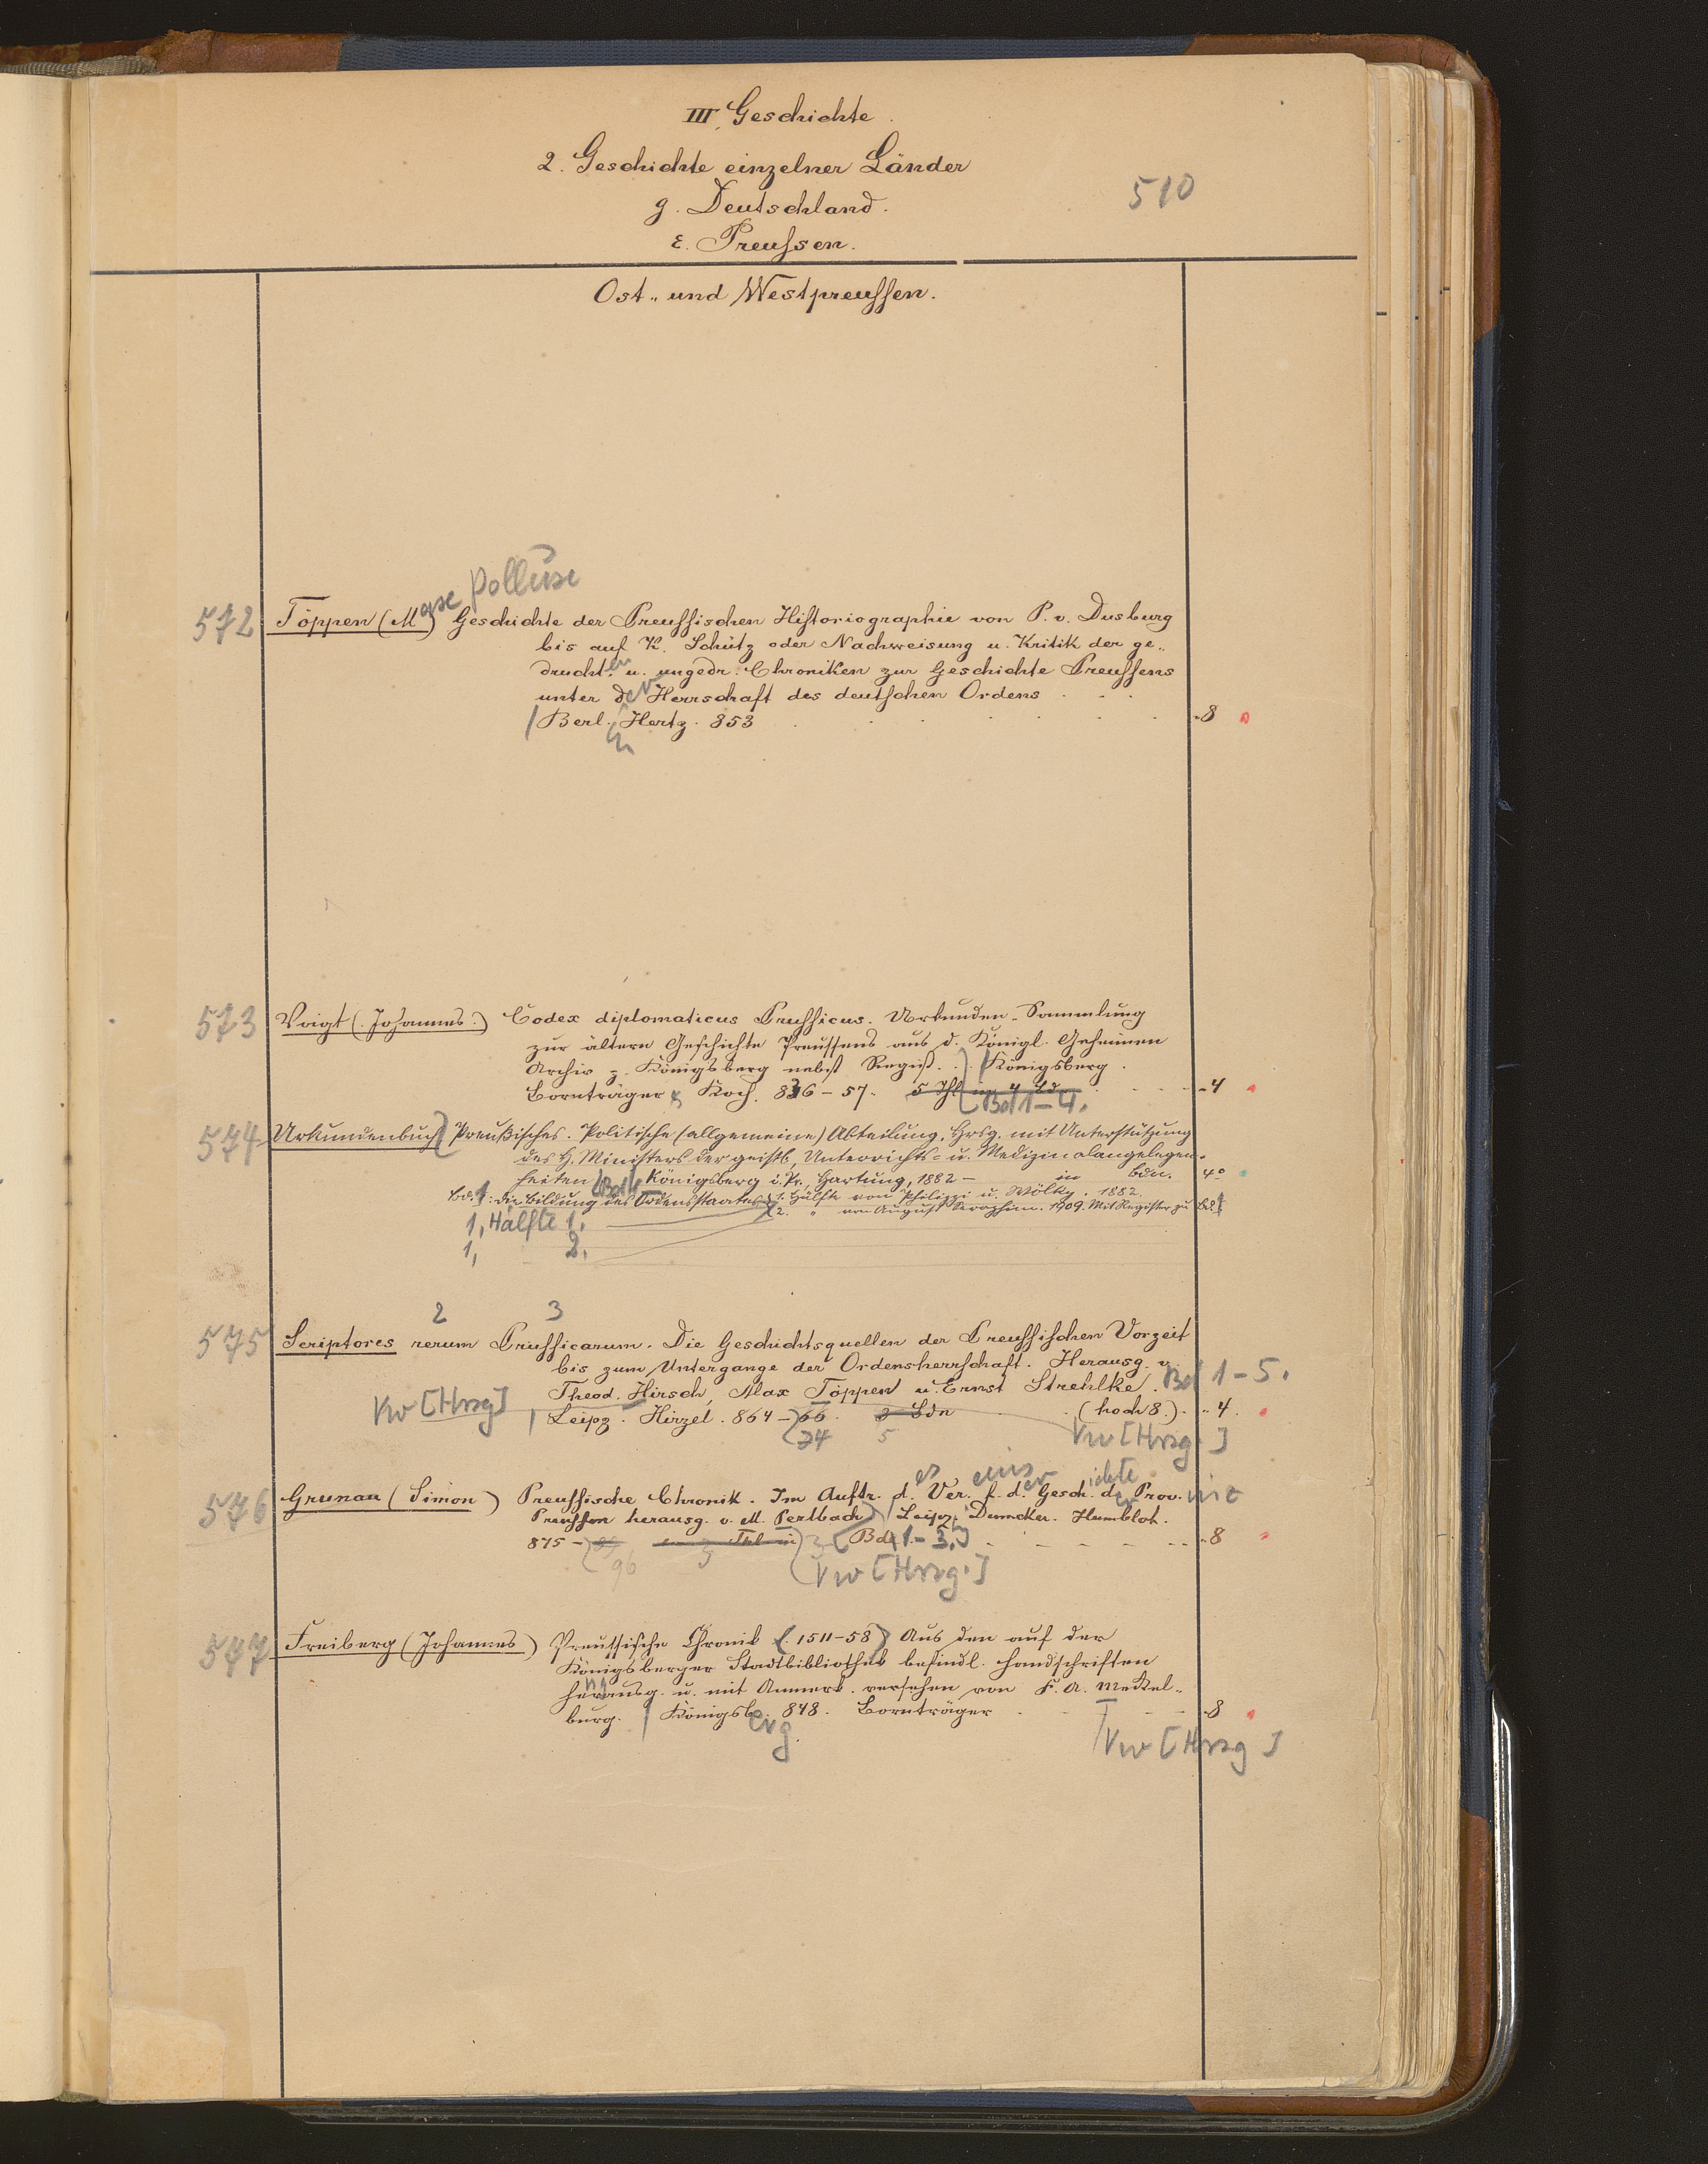 III. Geschichte.
2. Geschichte einzelner Länder
g. Deutschland.
ε. Preussen.
510
Ost- und Westpreussen.
Pollux
572 Töppen (Max) Geschichte der Preussischen Historiographie von P. v. Dusburg
bis auf K. Schütz oder Nachweisung u. Kritik der ge-
druckten u. ungedr. Chroniken zur Geschichte Preussens
unter der Herrschaft des deutschen Ordens
Berl. Hertz. 853 8
573 Voigt (Johannes.) Codex diplomaticus Prussicus. Urkunden-Sammlung
zur ältern Geschichte Preussens aus d. Königl. Geheimen
Archiv z. Königsberg nebst Regest. Königsberg.
Bornträger & Koch. 836-57. 5 Thl in 4 Bdn 4
Bd 1-4.
574 Urkundenbuch, Preußisches. Politische (allgemeine) Abteilung. Hrsg. mit Unterstützung
des H. Ministers der geistl., Unterrichts- u. Medizinalangelegen-
heiten. Bd 1. Königsberg i. Pr., Hartung, 1882- in Bdn. 4°
Bd. 1: Die Bildung des Ordensstaates 1. Hälfte von Philippi u. Wölky. 1882.
2. " von August Seraphim. 1909. Mit Register zu Bd. 1
1, Hälfte 1.
1, 2.
2 3
575 Scriptores rerum Prussicarum. Die Geschichtsquellen der Preussischen Vorzeit
bis zum Untergange der Ordensherrschaft. Herausg. v.
Theod. Hirsch, Max Töppen u. Ernst Strehlke. Bd 1-5.
Vw [Hrsg] Leipz. Hirzel. 864-66. 3 Bdn (hoch 8.) 4.
74 5 Vw [Hrsg.]
576 Grunau (Simon) Preussische Chronik. Im Auftr. des Ver. f. d. Geschichte der Provinz
Preussen herausg. v. M. Perlbach. Leipz. Duncker. Humblot.
875- Thl in 3 Bd 1-3. 8
96 3 Vw [Hrsg.]
577 Freiberg (Johannes) Preussische Chronik (1511-58) Aus den auf der
Königsberger Stadtbibliothek befindl. Handschriften
herausg. u. mit Anmerk. versehen von F. A. Meckel-
burg. Königsberg. 848. Bornträger 8
Vw [Hrsg]